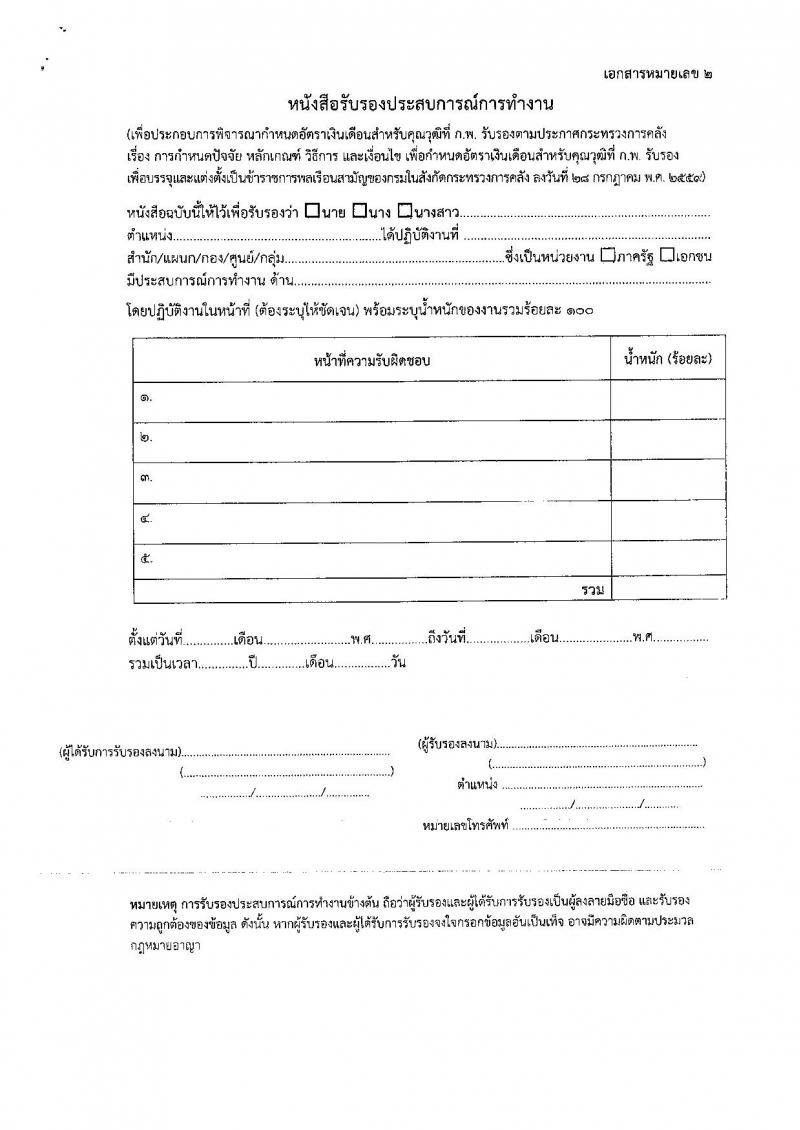 เอกสารหมายเลข ๒
หนังสือรับรองประสบการณ์การทำงาน
(เพื่อประกอบการพิจารณากำหนดอัตราเงินเดือนสำหรับคุณวุฒิที่ ก.พ. รับรองตามประกาศกระทรวงการคลัง
เรื่อง การกำหนดปัจจัย หลักเกณฑ์ วิธีการ และเงื่อนไข เพื่อกำหนดอัตราเงินเดือนสำหรับคุณวุฒิที่ ก.พ. รับรอง
เพื่อบรรจุและแต่งตั้งเป็นข้าราชการพลเรือนสามัญของกรมในสังกัดกระทรวงการคลัง ลงวันที่ ๒๘ กรกฎาคม พ.ศ. ๒๕๕๙)
หนังสือฉบับนี้ให้ไว้เพื่อรับรองว่า ☐นาย ☐นาง ☐นางสาว..............................
ตำแหน่ง..............................ได้ปฏิบัติงานที่ ..............................
สำนัก/แผนก/กอง/ศูนย์/กลุ่ม..............................ซึ่งเป็นหน่วยงาน ☐ภาครัฐ ☐เอกชน
มีประสบการณ์การทำงาน ด้าน..............................
โดยปฏิบัติงานในหน้าที่ (ต้องระบุให้ชัดเจน) พร้อมระบุน้ำหนักของงานรวมร้อยละ ๑๐๐
หน้าที่ความรับผิดชอบ น้ำหนัก (ร้อยละ)
๑.
๒.
๓.
๔.
๕.
รวม
ตั้งแต่วันที่..............เดือน........................พ.ศ...............ถึงวันที่.................เดือน....................พ.ศ...............
รวมเป็นเวลา..............ปี.............เดือน...............วัน
(ผู้ได้รับการรับรองลงนาม)..............................
(..............................)
............../.................../............
(ผู้รับรองลงนาม)..............................
(..............................)
ตำแหน่ง ..............................
............../.................../..........
หมายเลขโทรศัพท์ ..............................
หมายเหตุ การรับรองประสบการณ์การทำงานข้างต้น ถือว่าผู้รับรองและผู้ได้รับการรับรองเป็นผู้ลงลายมือชื่อ และรับรอง
ความถูกต้องของข้อมูล ดังนั้น หากผู้รับรองและผู้ได้รับการรับรองจงใจกรอกข้อมูลอันเป็นเท็จ อาจมีความผิดตามประมวล
กฎหมายอาญา